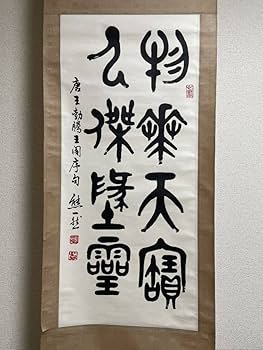 物華天寶
人傑墬靈
唐王勃滕王閣序句 熊